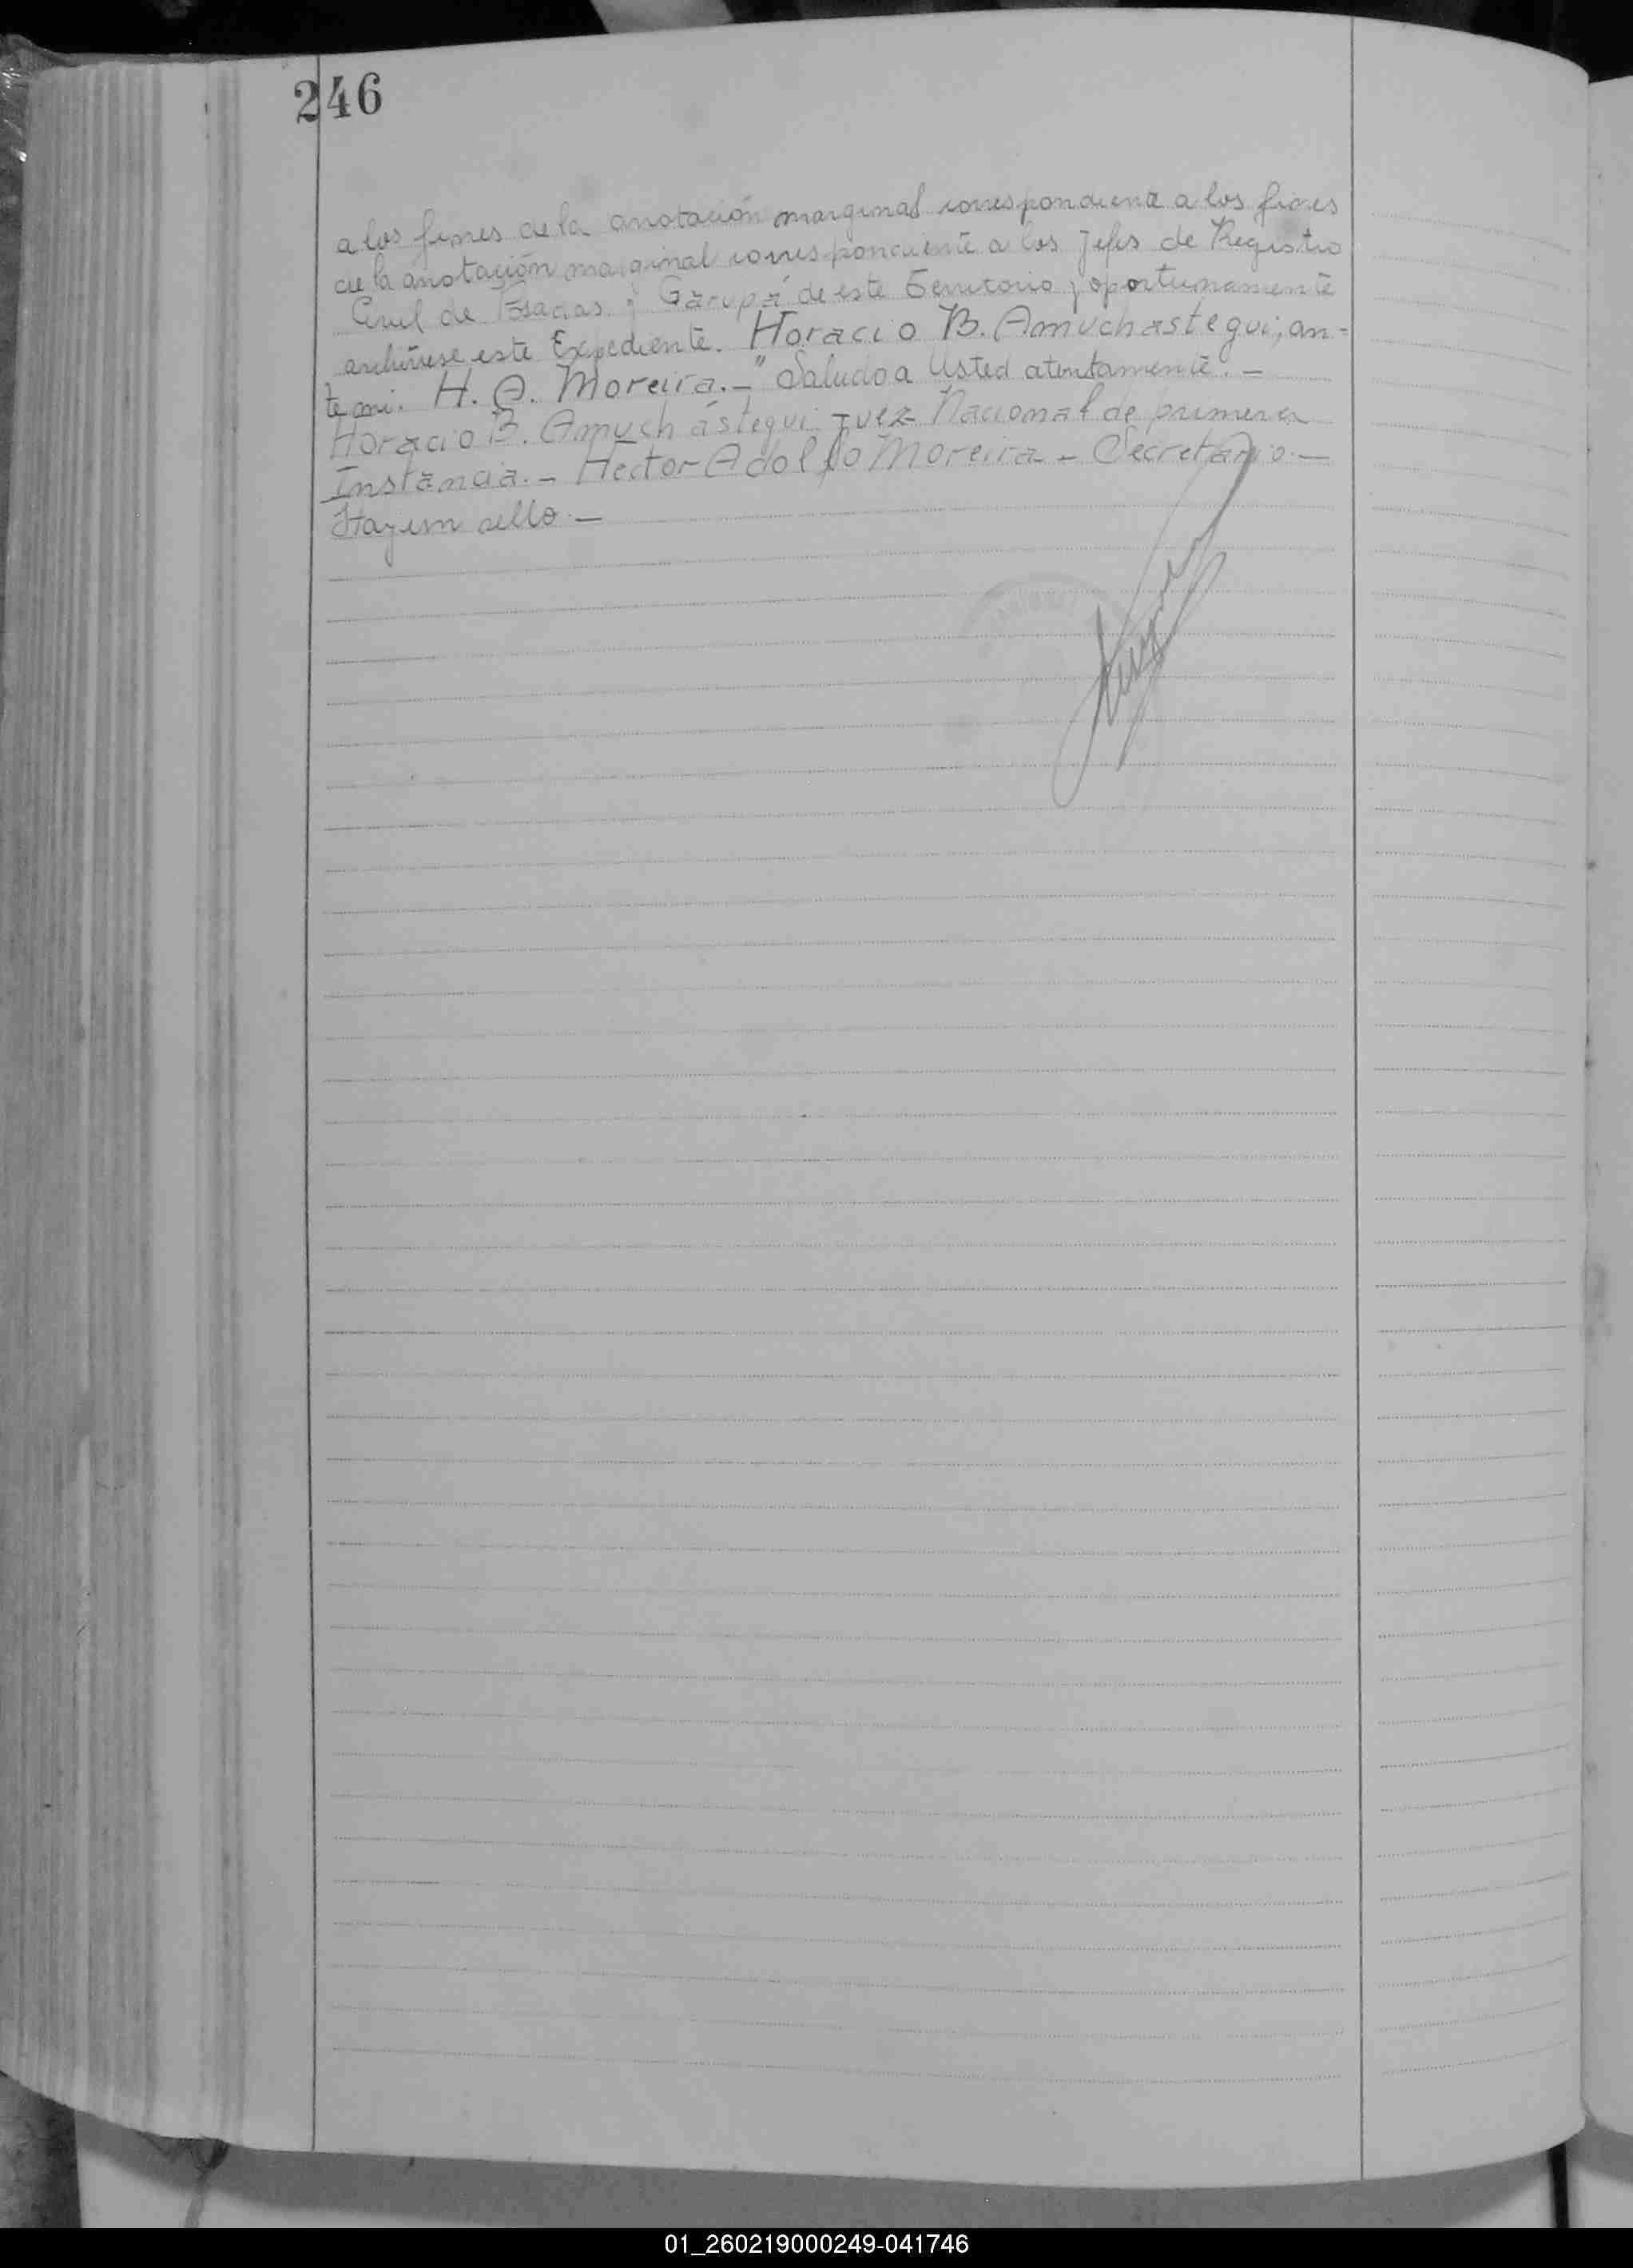 246
a los fines de la anotación marginal correspondiente a los fines
de la anotación marginal correspondiente a los Jefes de Registro
Civil de Posadas y Garupá de este Territorio y oportunamente
archívese este Expediente. Horacio B. Amuchastegui, an-
te mi. H. A. Moreira.-" Saludo a Usted atentamente. -
Horacio B. Amuchástegui Juez Nacional de primera
Instancia. - Hector Adolfo Moreira - Secretario. -
Hay un sello. -
01_260219000249-041746